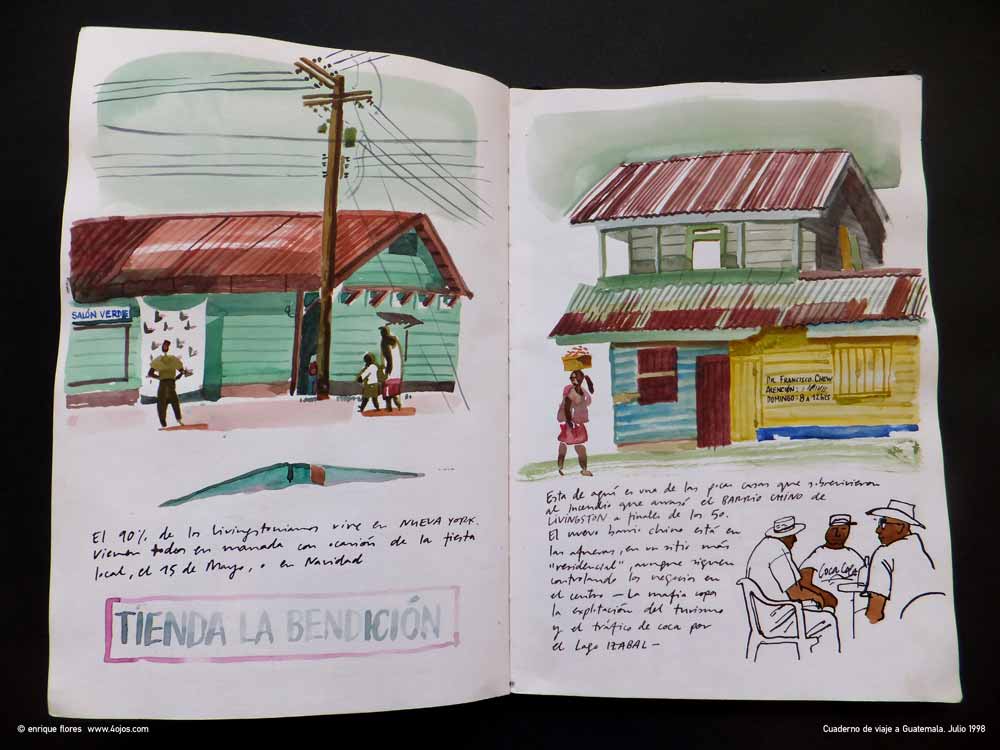 SALÓN VERDE
El 90% de los livingstonianos vive en NUEVA YORK.
Vienen todos en manada con ocasión de la fiesta
local, el 15 de Mayo, o en Navidad
TIENDA LA BENDICIÓN
DR. FRANCISCO CHEW
ATENCIÓN:
DOMINGO: 8 A 12HS
Esta de aquí es una de las pocas casas que sobrevivieron
al incendio que arrasó el BARRIO CHINO de
LIVINGSTON a finales de los 50.
El nuevo barrio chino está en
las afueras, en un sitio más
"residencial", aunque siguen
controlando los negocios en
el centro — La mafia copa
la explotación del turismo
y el tráfico de coca por
el Lago IZABAL —
COCA COLA
© enrique flores www.4ojos.com
Cuaderno de viaje a Guatemala. Julio 1998